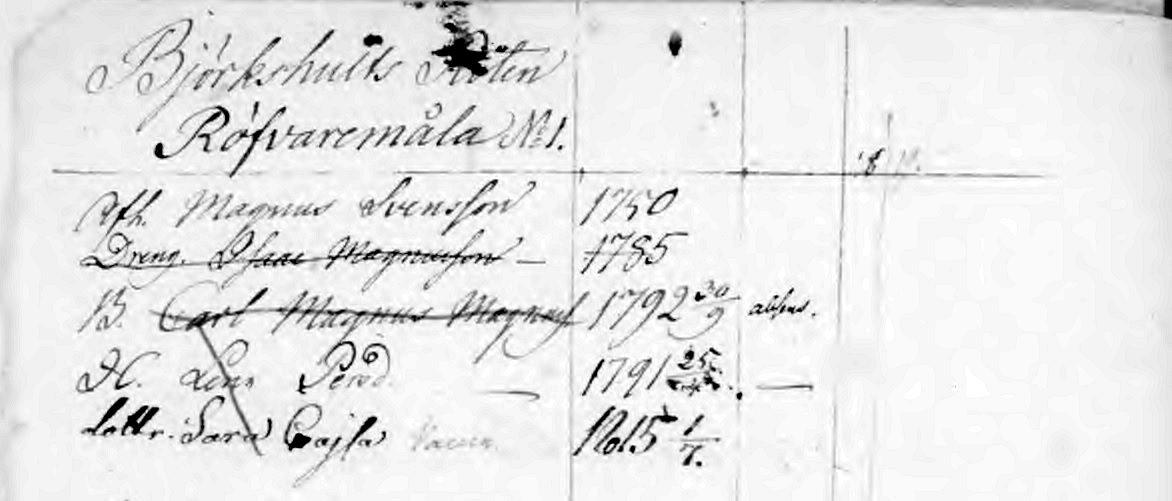 Björkshults Roten
Röfvaremåla No 1.
18
Afh. Magnus Svensson 1750
Dreng. Isaac Magnusson – 1785
B. Carl Magnus Magnuss 1792 30/9 absens.
H. Lena Persd. — 1791 25 —
dottr. Sara Cajsa Vaccin. 1815 1/7.